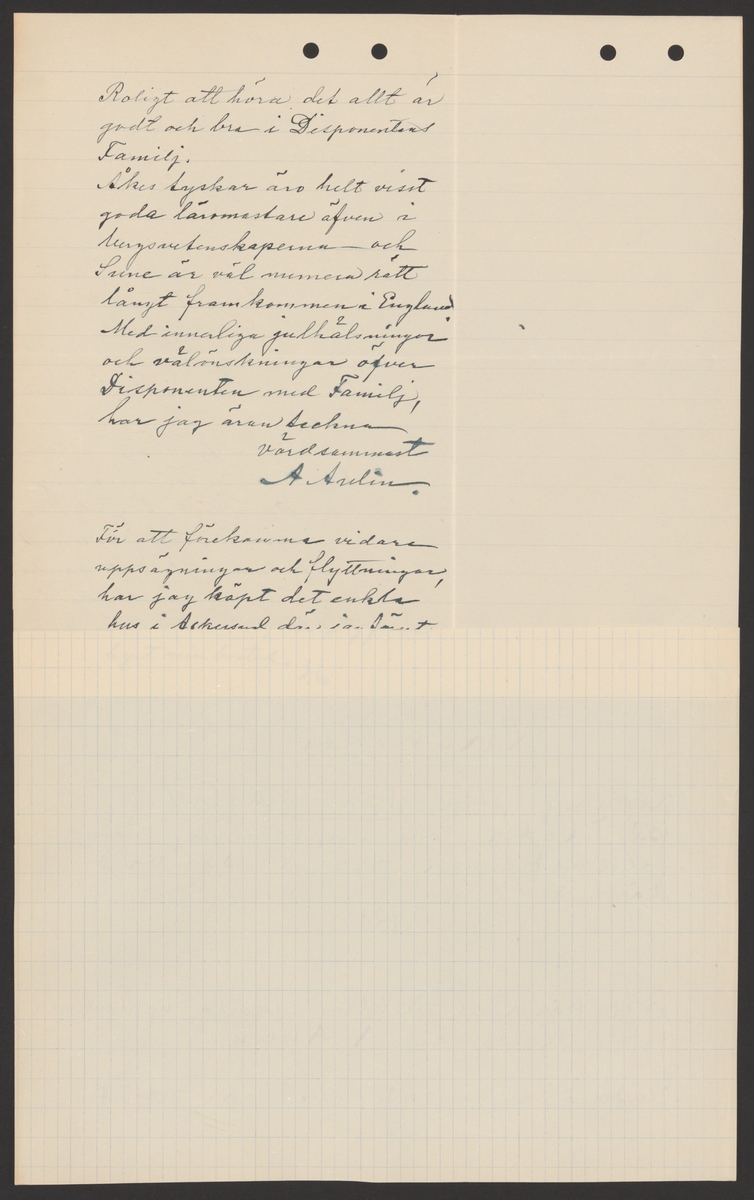 Roligt att höra det allt är
godt och bra i Disponentens
Familj.
Åkes tyskar äro helt visst
goda läromästare äfven i
bergsvetenskaperna – och
Sune är väl numera rätt
långt framkommen i England.
Med innerliga julhälsningar
och välönskningar öfver
Disponenten med Familj,
har jag äran teckna
vördsammast
A Arelin.
För att förekomma vidare
uppsägningar och flyttningar,
har jag köpt det enkla
hus i Askersund där jag